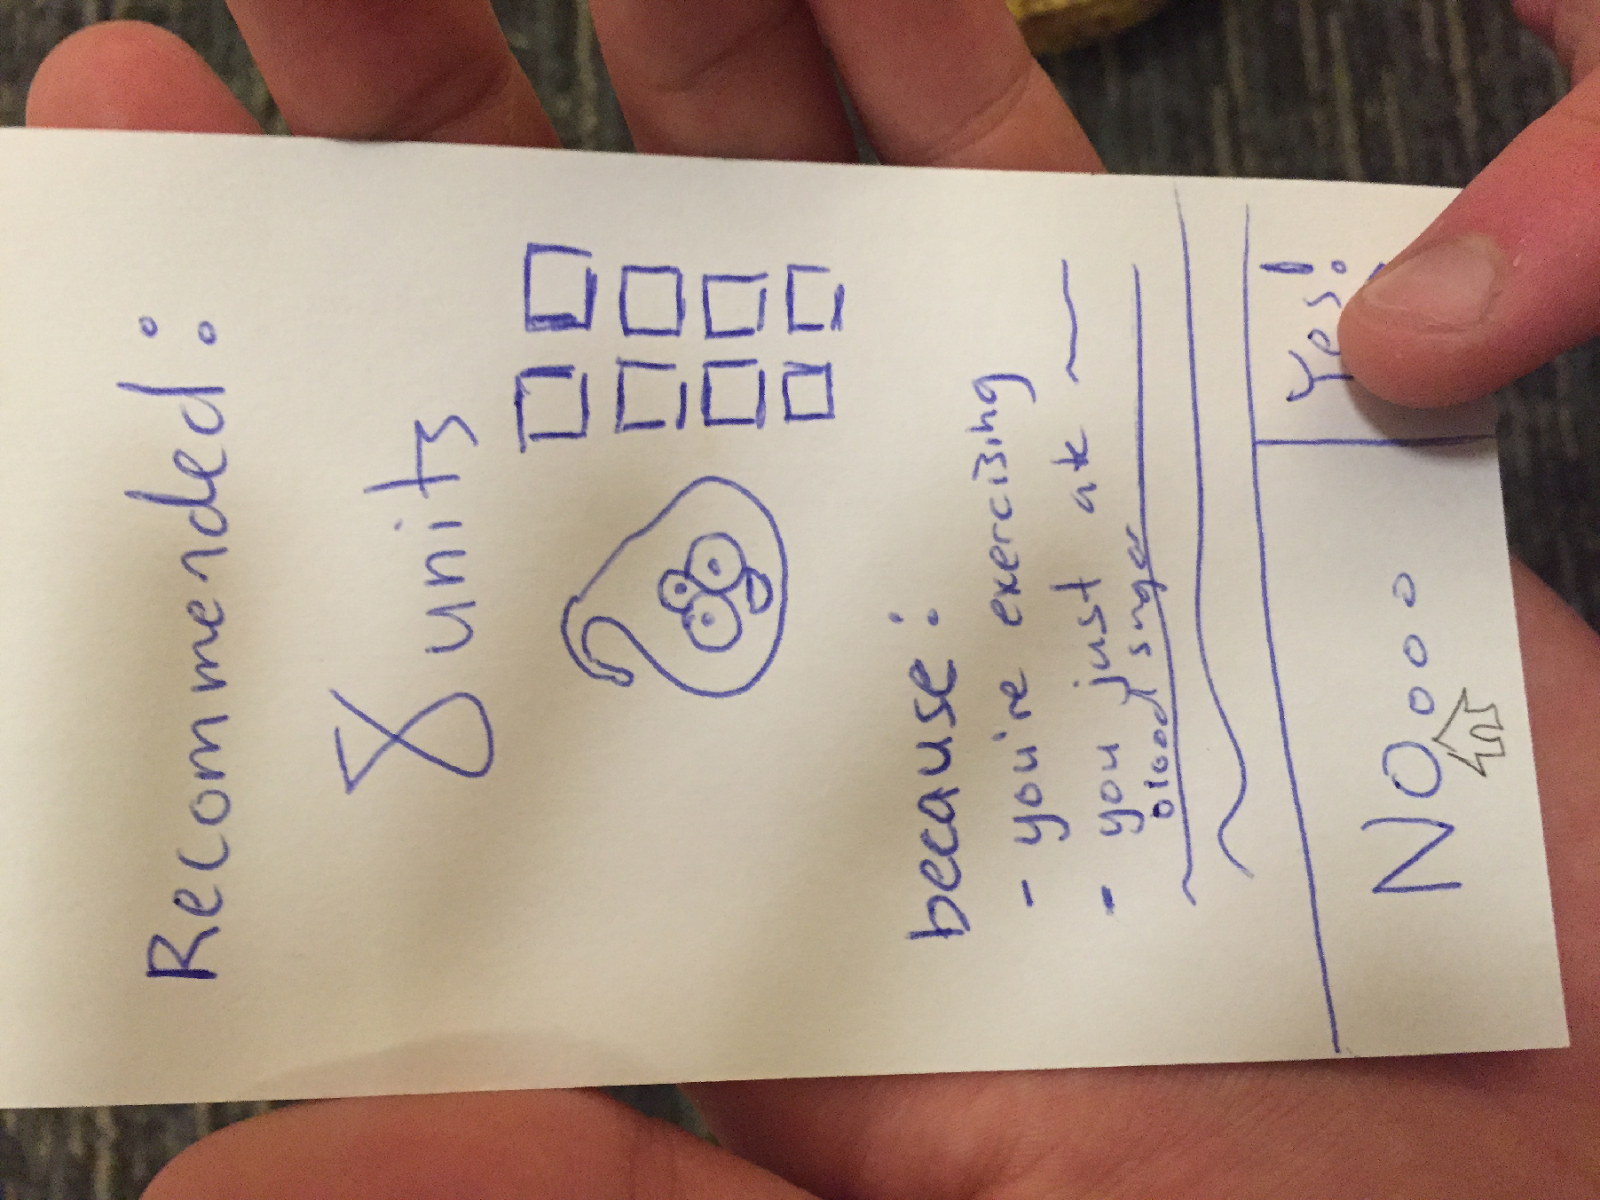 Recommended:
8 units
because:
- you're exercising
- you just ate ~
blood sugar
No...
Yes!